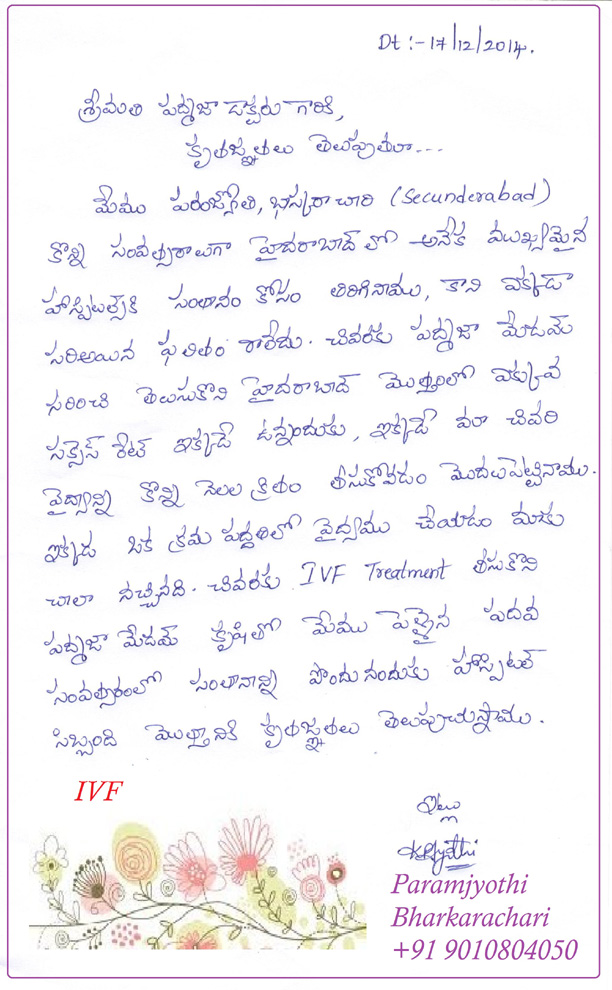 Dt :- 17/12/2014.
శ్రీమతి పద్మజా డాక్టరు గారికి,
కృతజ్ఞతలు తెలుపుతూ...
మేము పరంజ్యోతి, భాస్కరాచారి (Secunderabad)
కొన్ని సంవత్సరాలుగా హైదరాబాద్ లో అనేక ముఖ్యమైన
హాస్పిటల్స్‌కి సంతానం కోసం తిరిగినాము, కాని ఎక్కడా
సరిఅయిన ఫలితం రాలేదు. చివరకు పద్మజా మేడమ్
గురించి తెలుసుకొని హైదరాబాద్ మొత్తంలో ఎక్కువ
సక్సెస్ రేట్ ఇక్కడే ఉన్నందుకు, ఇక్కడే మా చివరి
వైద్యాన్ని కొన్ని నెలల క్రితం తీసుకోవడం మొదలుపెట్టినాము.
ఇక్కడ ఒక క్రమ పద్ధతిలో వైద్యము చేయడం మాకు
చాలా నచ్చినది. చివరకు IVF Treatment తీసుకొని
పద్మజా మేడమ్ కృషితో మేము పెళ్ళైన పదవ
సంవత్సరంలో సంతానాన్ని పొందునందుకు హాస్పిటల్
సిబ్బంది మొత్తానికి కృతజ్ఞతలు తెలుపుచున్నాము.
ఇట్లు
IVF
Paramjyothi
Bharkarachari
+91 9010804050